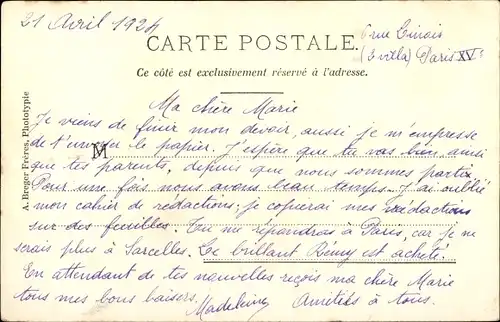 21 Avril 1924
6 rue Linois
(3 villa) Paris XVe
CARTE POSTALE.
Ce côté est exclusivement réservé à l'adresse.
A. Breger Frères, Phototypie
M
Ma chère Marie
Je viens de finir mon devoir, aussi je m'empresse
de t'envoyer le papier. J'espère que tu vas bien ainsi
que tes parents, depuis que nous sommes partis.
Pour une fois nous avons beau temps. J'ai oublié
mon cahier de rédactions; je copierai mes rédactions
sur des feuilles. Tu me répondras à Paris, car je ne
serais plus à Sarcelles. Le brillant Rémy est acheté.
En attendant de tes nouvelles reçois ma chère Marie
tous mes bons baisers.
Madeleine Amitiés à tous.